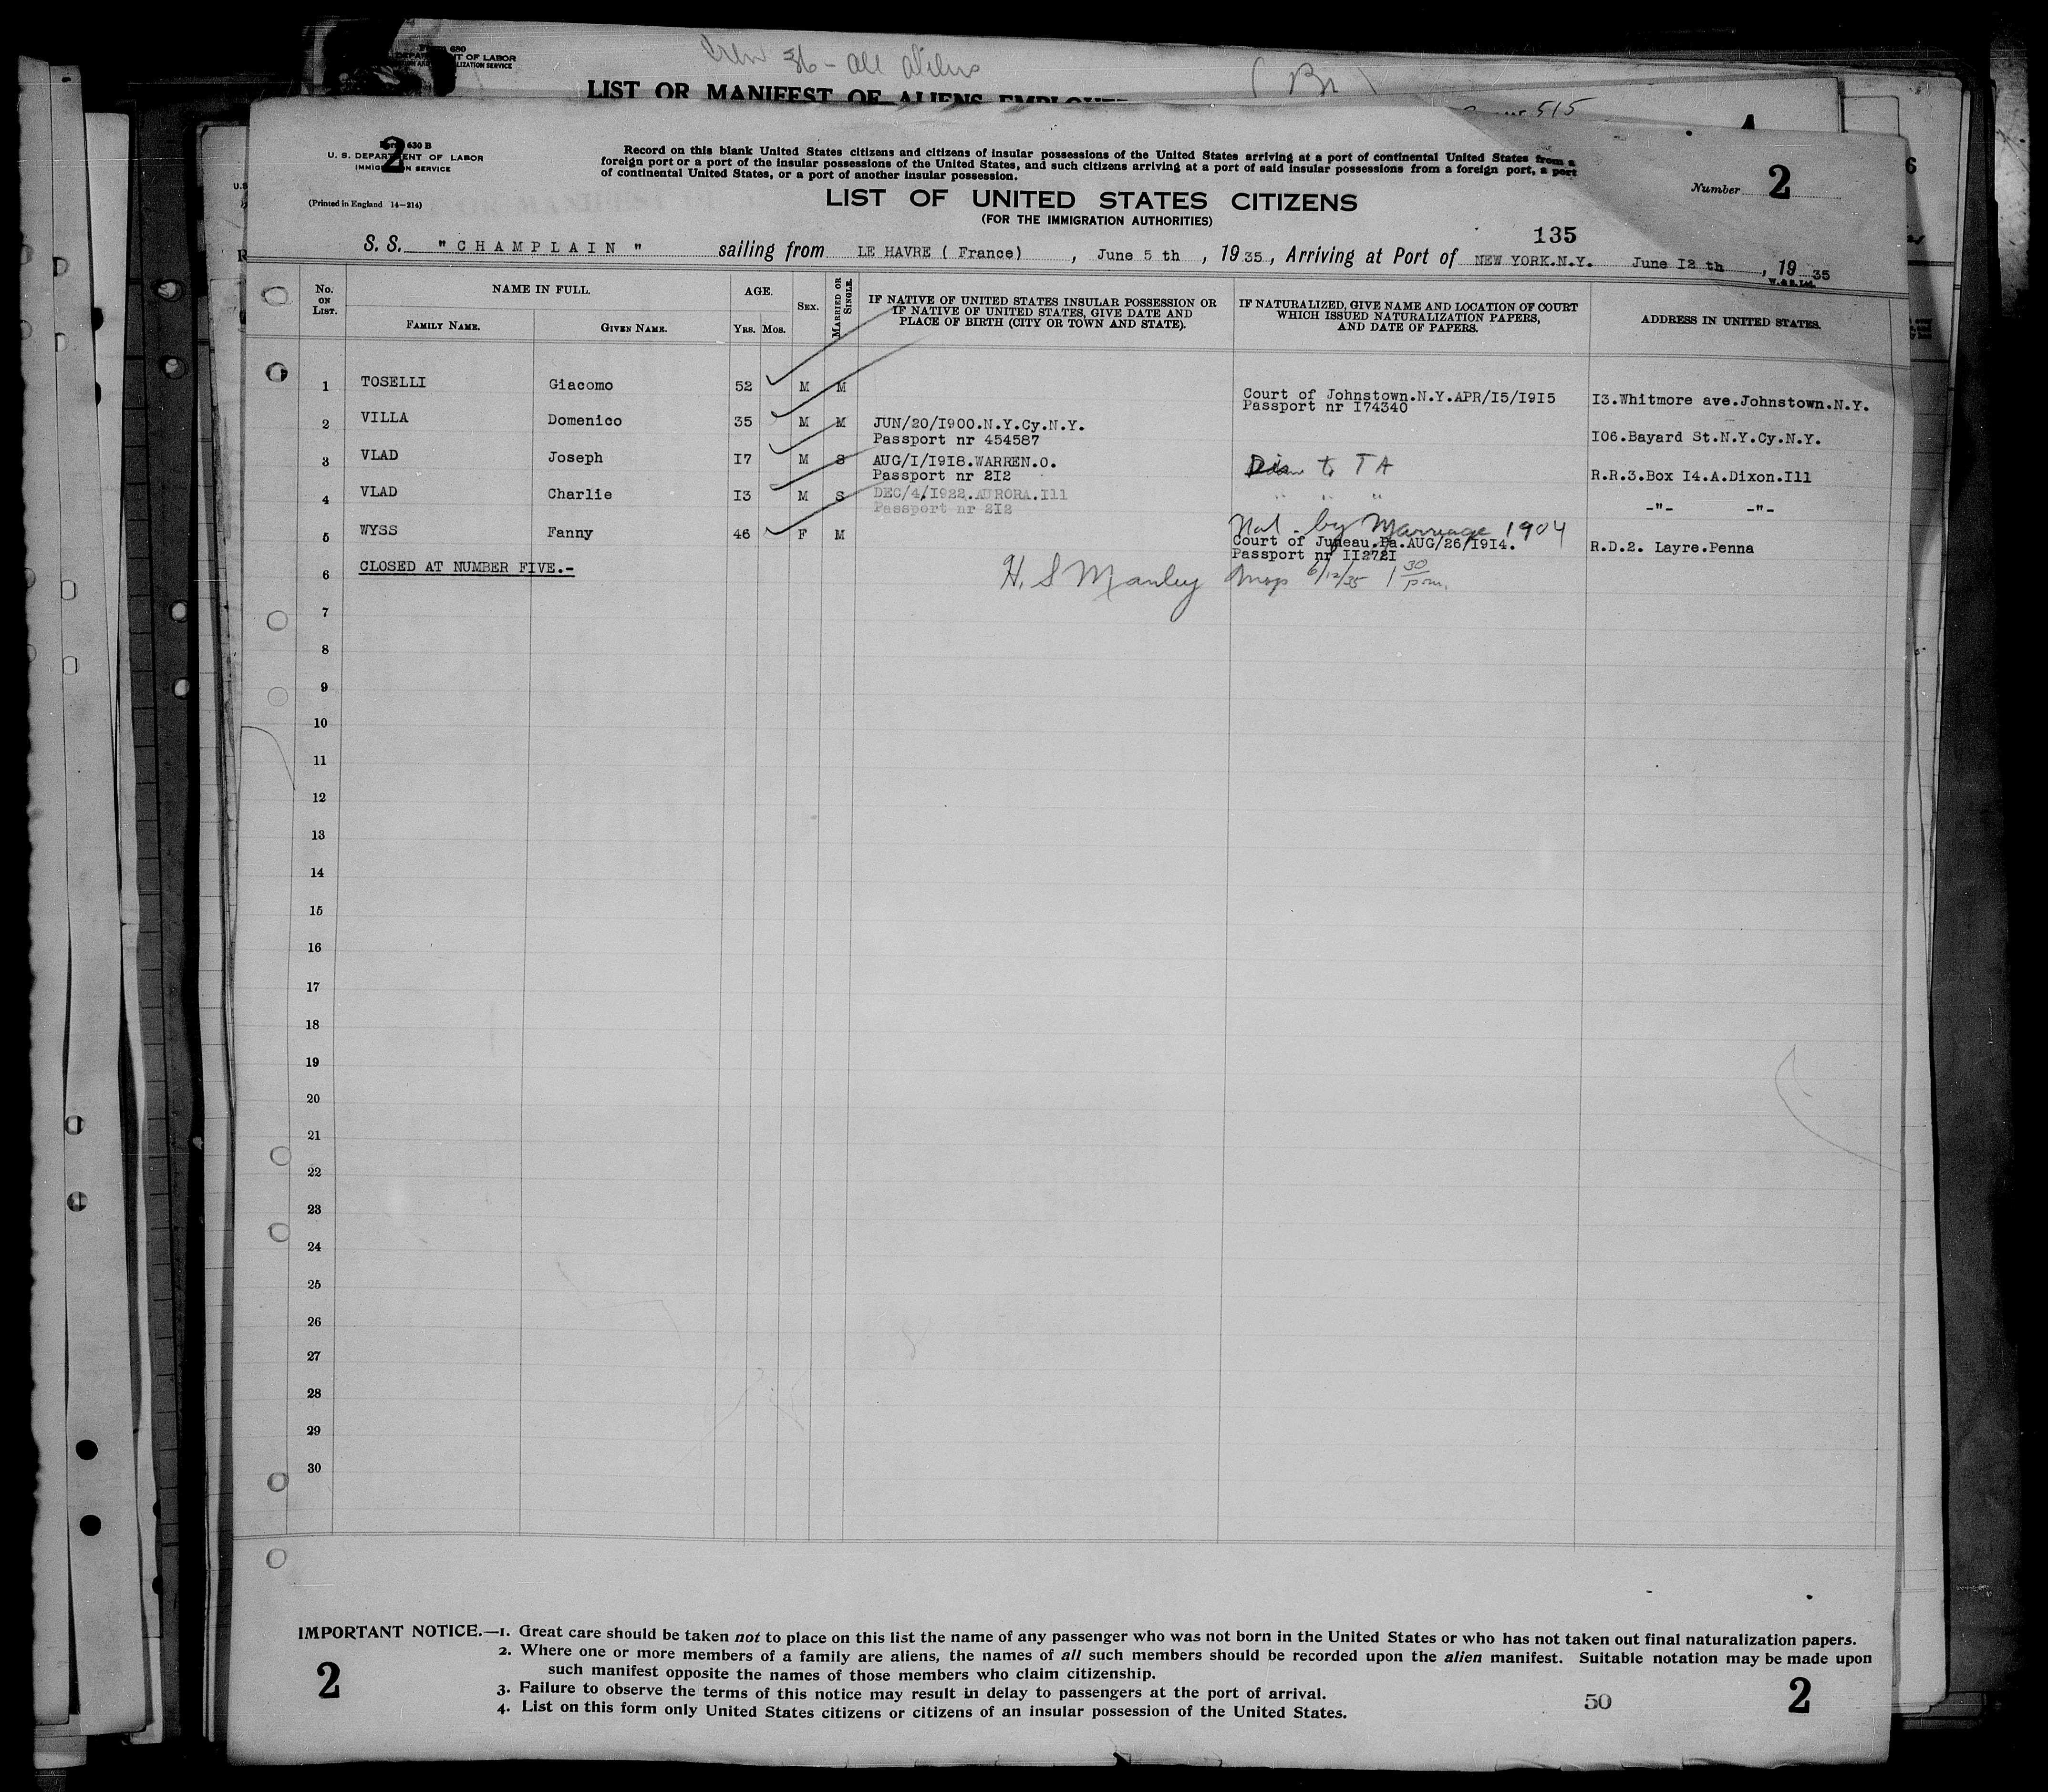 Crew 36 - all aliens
( Br )
680
DEPARTMENT OF LABOR
LIST OR MANIFEST OF ALIENS
515
2
Form 630 B
U. S. DEPARTMENT OF LABOR
IMMIGRATION SERVICE
(Printed in England 14—214)
Record on this blank United States citizens and citizens of insular possessions of the United States arriving at a port of continental United States from a
foreign port or a port of the insular possessions of the United States, and such citizens arriving at a port of said insular possessions from a foreign port, a port
of continental United States, or a port of another insular possession.
LIST OF UNITED STATES CITIZENS
(FOR THE IMMIGRATION AUTHORITIES)
Number 2
135
S. S. " CHAMPLAIN " sailing from LE HAVRE ( France) , June 5 th , 19 35 , Arriving at Port of NEW YORK.N.Y. June I2 th , 19 35
W. & S. Ltd.
No. ON LIST. NAME IN FULL. AGE. SEX. MARRIED OR SINGLE. IF NATIVE OF UNITED STATES INSULAR POSSESSION OR IF NATIVE OF UNITED STATES, GIVE DATE AND PLACE OF BIRTH (CITY OR TOWN AND STATE). IF NATURALIZED, GIVE NAME AND LOCATION OF COURT WHICH ISSUED NATURALIZATION PAPERS, AND DATE OF PAPERS. ADDRESS IN UNITED STATES.
FAMILY NAME. GIVEN NAME. YRS. MOS.
1 TOSELLI Giacomo 52 M M Court of Johnstown.N.Y.APR/I5/I9I5 I3.Whitmore ave.Johnstown.N.Y.
Passport nr I74340
2 VILLA Domenico 35 M M JUN/20/I900.N.Y.Cy.N.Y. I06.Bayard St.N.Y.Cy.N.Y.
Passport nr 454587
3 VLAD Joseph I7 M S AUG/I/I9I8.WARREN.O. to T A R.R.3.Box I4.A.Dixon.Ill
Passport nr 2I2
4 VLAD Charlie I3 M S DEC/4/I922.AURORA.Ill " " " -"- -"-
Passport nr 2I2
Nat. by Marriage 1904
5 WYSS Fanny 46 F M Court of Juneau.Pa.AUG/26/I9I4. R.D.2. Layre.Penna
Passport nr II272I
6 CLOSED AT NUMBER FIVE.-
H. S Manley 6/12/35 1 30 p.m.
7
8
9
10
11
12
13
14
15
16
17
18
19
20
21
22
23
24
25
26
27
28
29
30
IMPORTANT NOTICE.—1. Great care should be taken not to place on this list the name of any passenger who was not born in the United States or who has not taken out final naturalization papers.
2. Where one or more members of a family are aliens, the names of all such members should be recorded upon the alien manifest. Suitable notation may be made upon
such manifest opposite the names of those members who claim citizenship.
3. Failure to observe the terms of this notice may result in delay to passengers at the port of arrival.
4. List on this form only United States citizens or citizens of an insular possession of the United States.
2
50
2